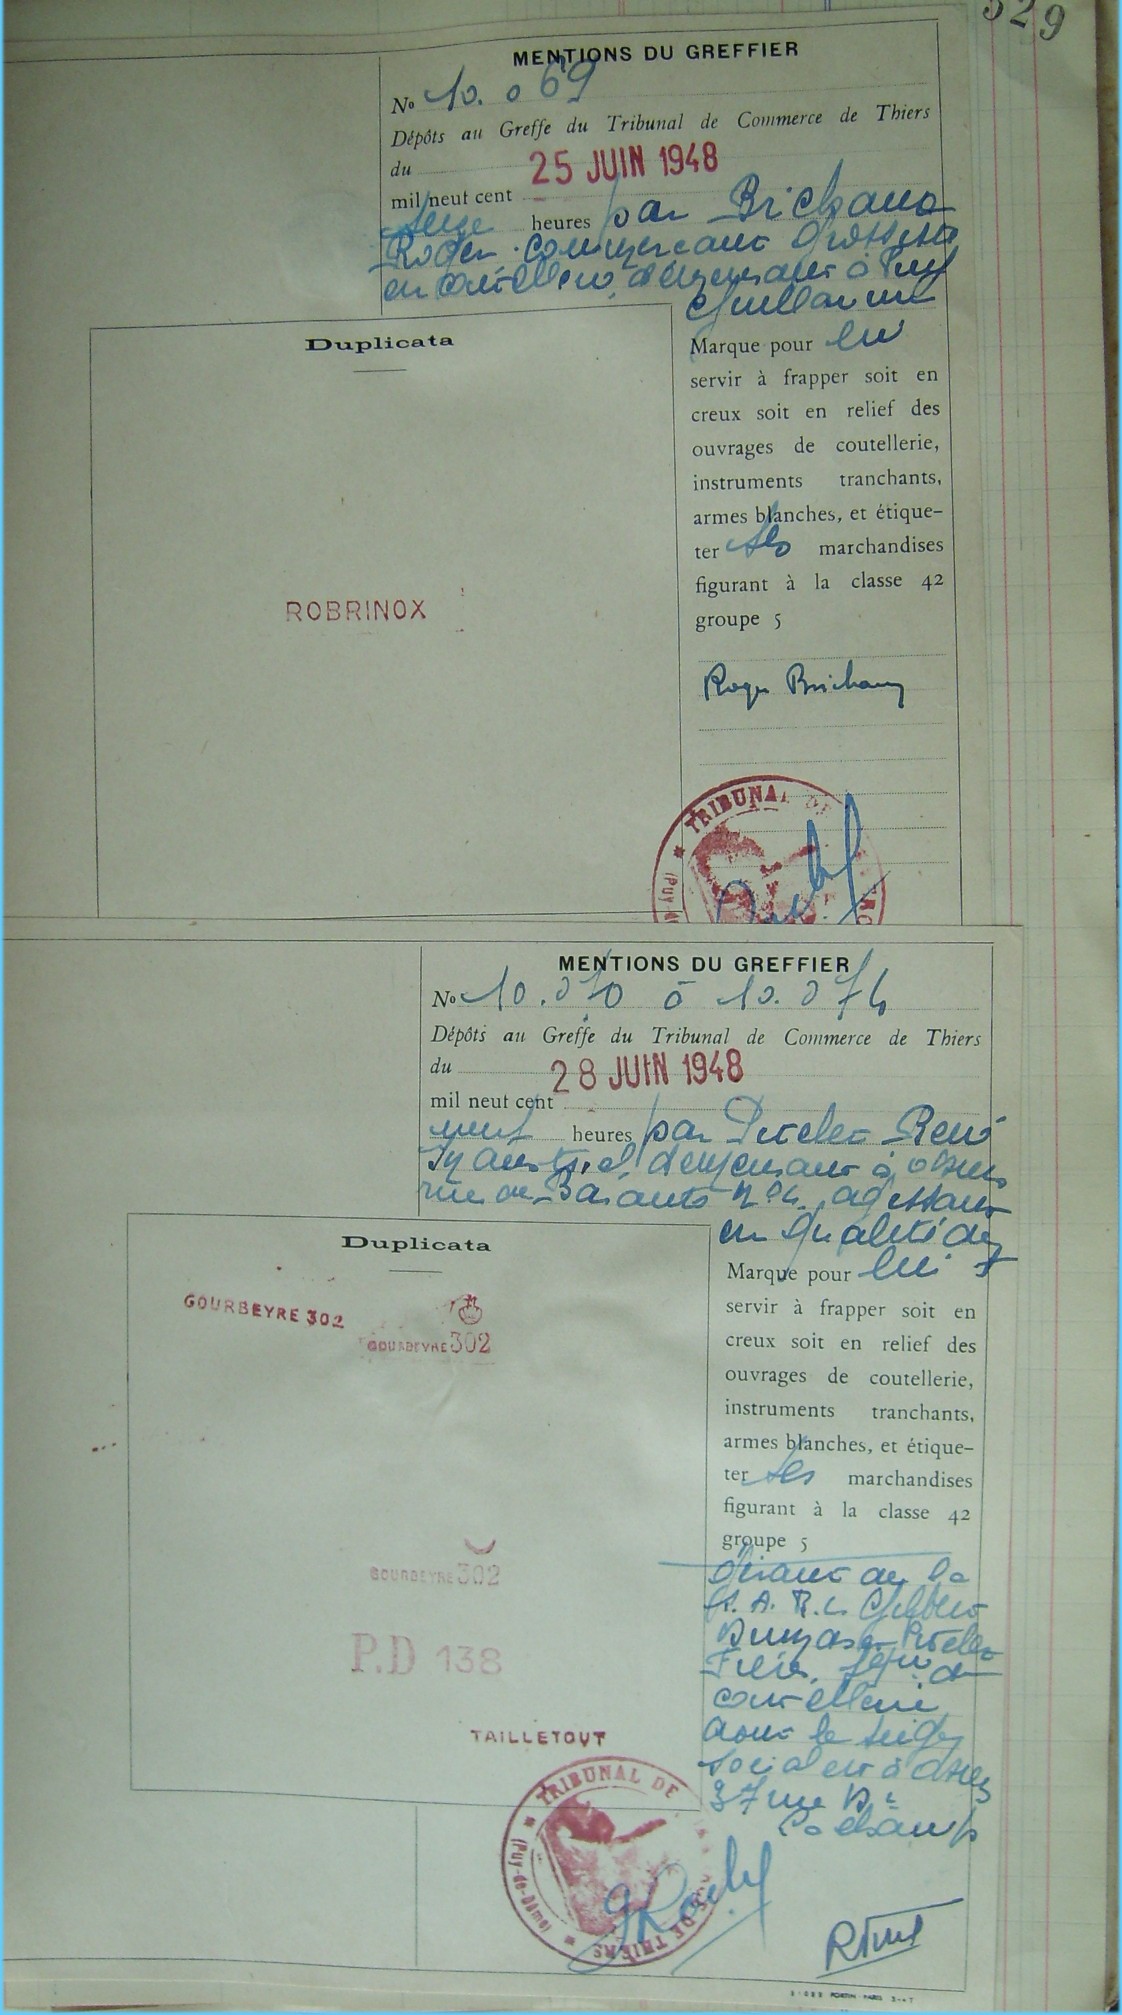 329
MENTIONS DU GREFFIER
No 10.069
Dépôts au Greffe du Tribunal de Commerce de Thiers
du 25 JUIN 1948
mil neut cent
seize heures par
Roger commerçant Grossiste
en demeurant à Puy
Guillaume
Duplicata
Marque pour lui
servir à frapper soit en
creux soit en relief des
ouvrages de coutellerie,
instruments tranchants,
armes blanches, et étique-
ter ses marchandises
figurant à la classe 42
groupe 5
ROBRINOX
Roger
TRIBUNAL DE
MENTIONS DU GREFFIER
No 10.070 à 10.074
Dépôts au Greffe du Tribunal de Commerce de Thiers
du 28 JUIN 1948
mil neut cent
neuf heures par René
Industriel demeurant à
rue de Barante agissant
en qualité de
Duplicata
Marque pour lui
servir à frapper soit en
creux soit en relief des
ouvrages de coutellerie,
instruments tranchants,
armes blanches, et étique-
ter ses marchandises
figurant à la classe 42
groupe 5
GOURBEYRE 302
GOURBEYRE 302
GOURBEYRE 302
P.D 138
TAILLETOUT
Gérant de la
S.A.R.L. Gilbert
Dumas et
Frères,
coutellerie
dont le siège
social est à
37 rue
TRIBUNAL DE
DE THIERS
(Puy-de-Dôme)